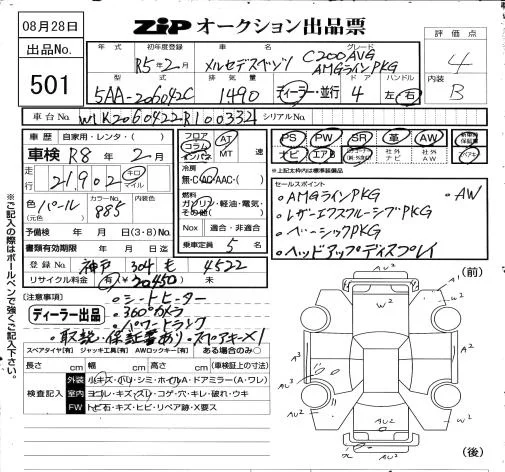 08月28日
ZIP オークション出品票
出品No.
501
評価点
4
内装
B
年式 初年度登録 車名 グレード
R5年2月 メルセデスベンツ C200AVG
AMGラインPKG
型式 排気量 ディーラー・並行 ドア ハンドル
5AA-206042C 1490 4 左・右
車台No. W1K2060422-R100334 シリアルNo.
車歴 自家用・レンタ・( )
車検 R8年2月
走行 21,902 キロ マイル
色 パール (元色) カラーNo. 885 内装色
予備検 年 月 日 (3・8) No.
書類有効期限 年 月 日迄
登録No. 神戸 304 も 4522
リサイクル料金 有 ¥20450 未
フロア コラム インパネ AT MT 速
冷房 無・C・AC・AAC・( )
燃料 ガソリン・軽油・電気・その他( )
Nox 適合・非適合
乗車定員 5名
PS PW SR 革 AW
ナビ エアB 社外ナビ 社外AW
※上記太枠内は標準装備品
セールスポイント
・AMGラインPKG ・AW
・レザーエクスクルーシブPKG
・ベーシックPKG
・ヘッドアップディスプレイ
(注意事項) ・シートヒーター
ディーラー出品 ・360°カメラ
・パワートランク
・取説・保証書あり ・スペアキー×1
スペアタイヤ[有] ジャッキ工具[有] AWロックキー[有] ある場合のみ○
長さ cm 幅 cm 高さ cm (車検証上の寸法)
検査記入
外装 小キズ・ハリ・シミ・ホイルA・ドアミラー(A・ワレ)
室内 ヨゴレ・キズ・スレ・コゲ・穴・キレ・破れ・ウキ
FW トビ石・キズ・ヒビ・リペア跡・X要ス
※ご記入の際はボールペンで強くご記入下さい。
(前)
AU2
A1
W2
W2
A3
A2
AU3
AU2
W2
AU2
(後)